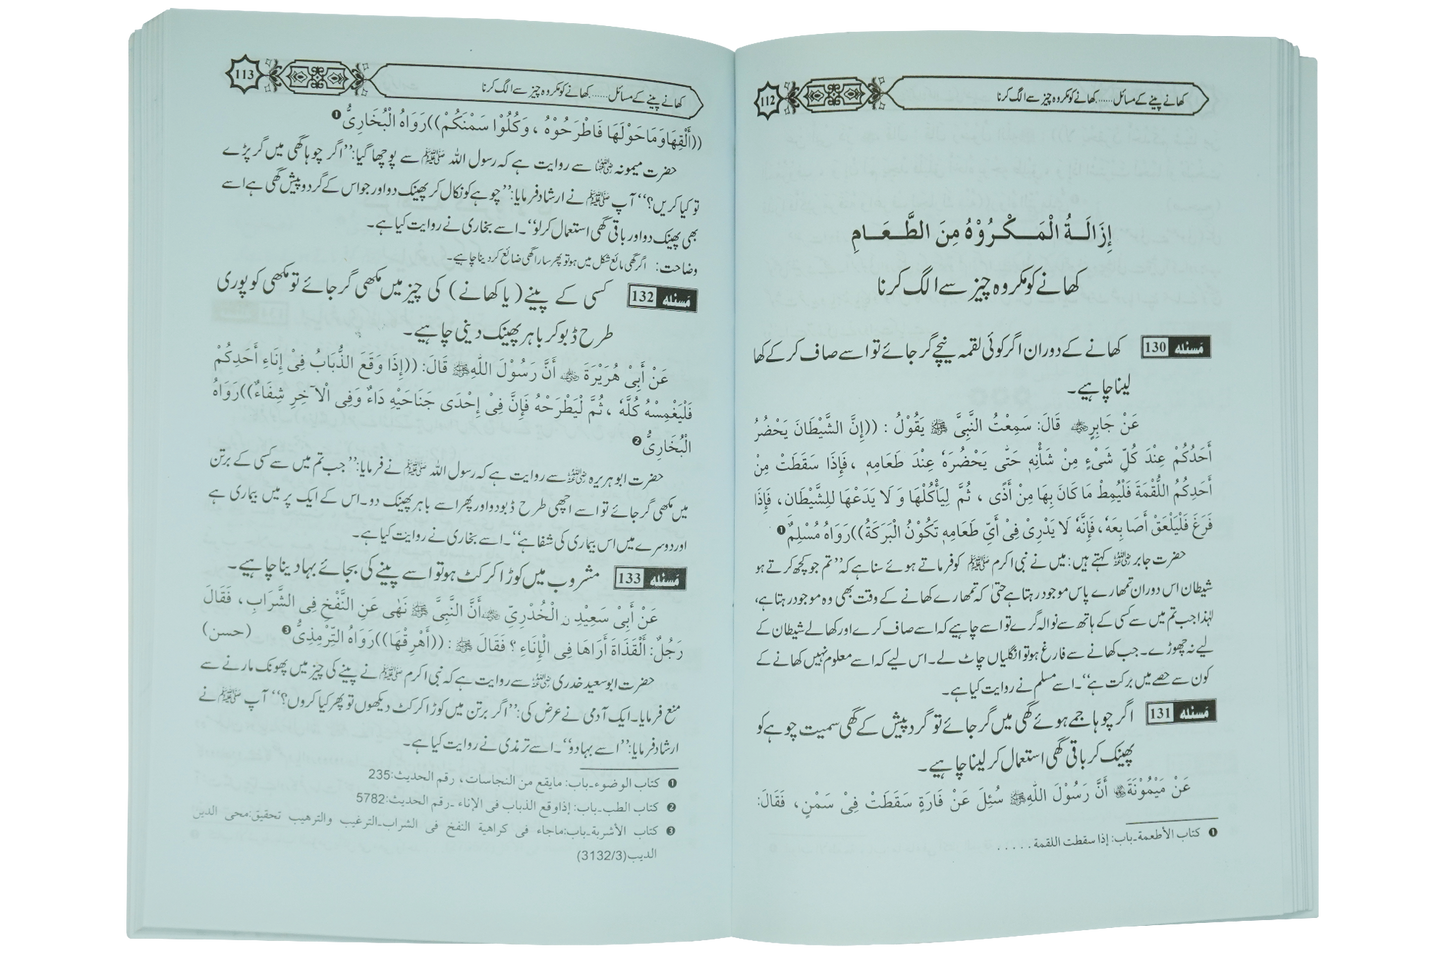 112
کھانے پینے کے مسائل......کھانے کو مکروہ چیز سے الگ کرنا
إِزَالَــةُ الْمَـكْـرُوْهُ مِنَ الطَّـعَــامِ
کھانے کو مکروہ چیز سے الگ کرنا
مَسئلہ 130 کھانے کے دوران اگر کوئی لقمہ نیچے گر جائے تو اسے صاف کر کے کھا
لینا چاہیے۔
عَنْ جَابِرٍ ﷛ قَالَ: سَمِعْتُ النَّبِیَّ ﷺ یَقُوْلُ : ((إِنَّ الشَّیْطَانَ یَحْضُرُ
أَحَدَکُمْ عِنْدَ کُلِّ شَیْءٍ مِنْ شَأْنِهٖ حَتّٰی یَحْضُرَهٗ عِنْدَ طَعَامِهٖ ، فَإِذَا سَقَطَتْ مِنْ
أَحَدِکُمُ اللُّقْمَةَ فَلْیُمِطْ مَا کَانَ بِهَا مِنْ أَذًی ، ثُمَّ لِیَأْکُلْهَا وَ لَا یَدَعْهَا لِلشَّیْطَانِ، فَإِذَا
فَرَغَ فَلْیَلْعَقْ أَصَابِعَهٗ ، فَإِنَّهٗ لَا یَدْرِیْ فِیْ أَیِّ طَعَامِهٖ تَکُوْنُ الْبَرَکَةُ))رَوَاهُ مُسْلِمٌ❶
حضرت جابر ﷛ کہتے ہیں: میں نے نبی اکرم ﷺ کو فرماتے ہوئے سنا ہے کہ ’’تم جو کچھ کرتے ہو
شیطان اس دوران تمہارے پاس موجود رہتا ہے حتیٰ کہ تمہارے کھانے کے وقت بھی وہ موجود رہتا ہے،
لہٰذا جب تم میں سے کسی کے ہاتھ سے نوالہ گرے تو اسے چاہیے کہ اسے صاف کرے اور کھا لے شیطان کے
لیے نہ چھوڑے۔ جب کھانے سے فارغ ہو تو انگلیاں چاٹ لے۔ اس لیے کہ اسے معلوم نہیں کھانے کے
کون سے حصے میں برکت ہے‘‘۔ اسے مسلم نے روایت کیا ہے۔
مَسئلہ 131 اگر چوہا جمے ہوئے گھی میں گر جائے تو گردپیش کے گھی سمیت چوہے کو
پھینک کر باقی گھی استعمال کر لینا چاہیے۔
عَنْ مَیْمُوْنَةَ ﷞ أَنَّ رَسُوْلَ اللّٰهِ ﷺ سُئِلَ عَنْ فَارَةٍ سَقَطَتْ فِیْ سَمْنٍ ، فَقَالَ:
❶ کتاب الأطعمة۔باب: إذا سقطت اللقمة . . . . .
113
کھانے پینے کے مسائل......کھانے کو مکروہ چیز سے الگ کرنا
((أَلْقِهَا وَمَا حَوْلَهَا فَاطْرَحُوْهُ ، وَکُلُوْا سَمْنَکُمْ))رَوَاهُ الْبُخَارِیُّ❶
حضرت میمونہ ﷞ سے روایت ہے کہ رسول اللہ ﷺ سے پوچھا گیا:’’اگر چوہا گھی میں گر پڑے
تو کیا کریں؟‘‘ آپ ﷺ نے ارشاد فرمایا:’’چوہے کو نکال کر پھینک دو اور جو اس کے گردو پیش گھی ہے اسے
بھی پھینک دو اور باقی گھی استعمال کر لو‘‘۔ اسے بخاری نے روایت کیا ہے۔
وضاحت: اگر گھی مائع شکل میں ہو تو پھر سارا گھی ضائع کر دینا چاہیے۔
مَسئلہ 132 کسی کے پینے (یا کھانے) کی چیز میں مکھی گر جائے تو مکھی کو پوری
طرح ڈبو کر باہر پھینک دینی چاہیے۔
عَنْ أَبِیْ هُرَیْرَةَ ﷛ أَنَّ رَسُوْلَ اللّٰهِ ﷺ قَالَ: ((إِذَا وَقَعَ الذُّبَابُ فِیْ إِنَاءِ أَحَدِکُمْ
فَلْیَغْمِسْهُ کُلَّهٗ ، ثُمَّ لْیَطْرَحْهُ فَإِنَّ فِیْ إِحْدَی جَنَاحَیْهِ دَاءٌ وَفِی الْآخِرِ شِفَاءٌ))رَوَاهُ
الْبُخَارِیُّ❷
حضرت ابو ہریرہ ﷛ سے روایت ہے کہ رسول اللہ ﷺ نے فرمایا:’’جب تم میں سے کسی کے برتن
میں مکھی گر جائے تو اسے اچھی طرح ڈبو دو اور پھر اسے باہر پھینک دو۔ اس کے ایک پر میں بیماری ہے
اور دوسرے میں اس بیماری کی شفا ہے‘‘۔ اسے بخاری نے روایت کیا ہے۔
مَسئلہ 133 مشروب میں کوڑا کرکٹ ہو تو اسے پینے کی بجائے بہا دینا چاہیے۔
عَنْ أَبِیْ سَعِیْدِ نِ الْخُدْرِیِّ ﷛ أَنَّ النَّبِیَّ ﷺ نَهٰی عَنِ النَّفْخِ فِی الشَّرَابِ ، فَقَالَ
رَجُلٌ: أَلْقَذَاةَ أَرَاهَا فِی الْإِنَاءِ ؟ فَقَالَ ﷺ : ((أَهْرِقْهَا))رَوَاهُ التِّرْمِذِیُّ❸ (حسن)
حضرت ابو سعید خدری ﷛ سے روایت ہے کہ نبی اکرم ﷺ نے پینے کی چیز میں پھونک مارنے سے
منع فرمایا۔ ایک آدمی نے عرض کی:’’اگر برتن میں کوڑا کرکٹ دیکھوں تو پھر کیا کروں؟‘‘ آپ ﷺ نے
ارشاد فرمایا:’’اسے بہا دو‘‘۔ اسے ترمذی نے روایت کیا ہے۔
❶ کتاب الوضوء۔باب: مایقع من النجاسات ، رقم الحدیث:235
❷ کتاب الطب۔باب: إذاوقع الذباب فی الإناء ۔رقم الحدیث:5782
❸ کتاب الأشربة۔باب:ماجاء فی کراهیة النفخ فی الشراب۔الترغیب والترهیب تحقیق:محی الدین
الدیب(3132/3)